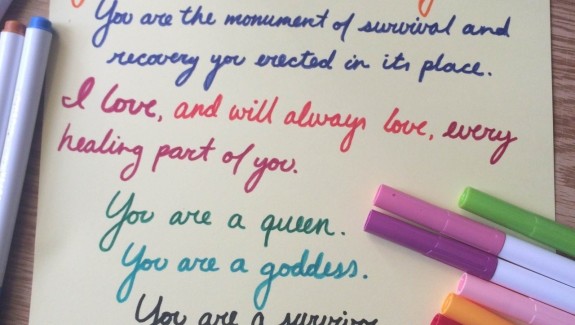 You are the monument of survival and
recovery you erected in its place.
I love, and will always love, every
healing part of you.
You are a queen.
You are a goddess.
You are a survivor